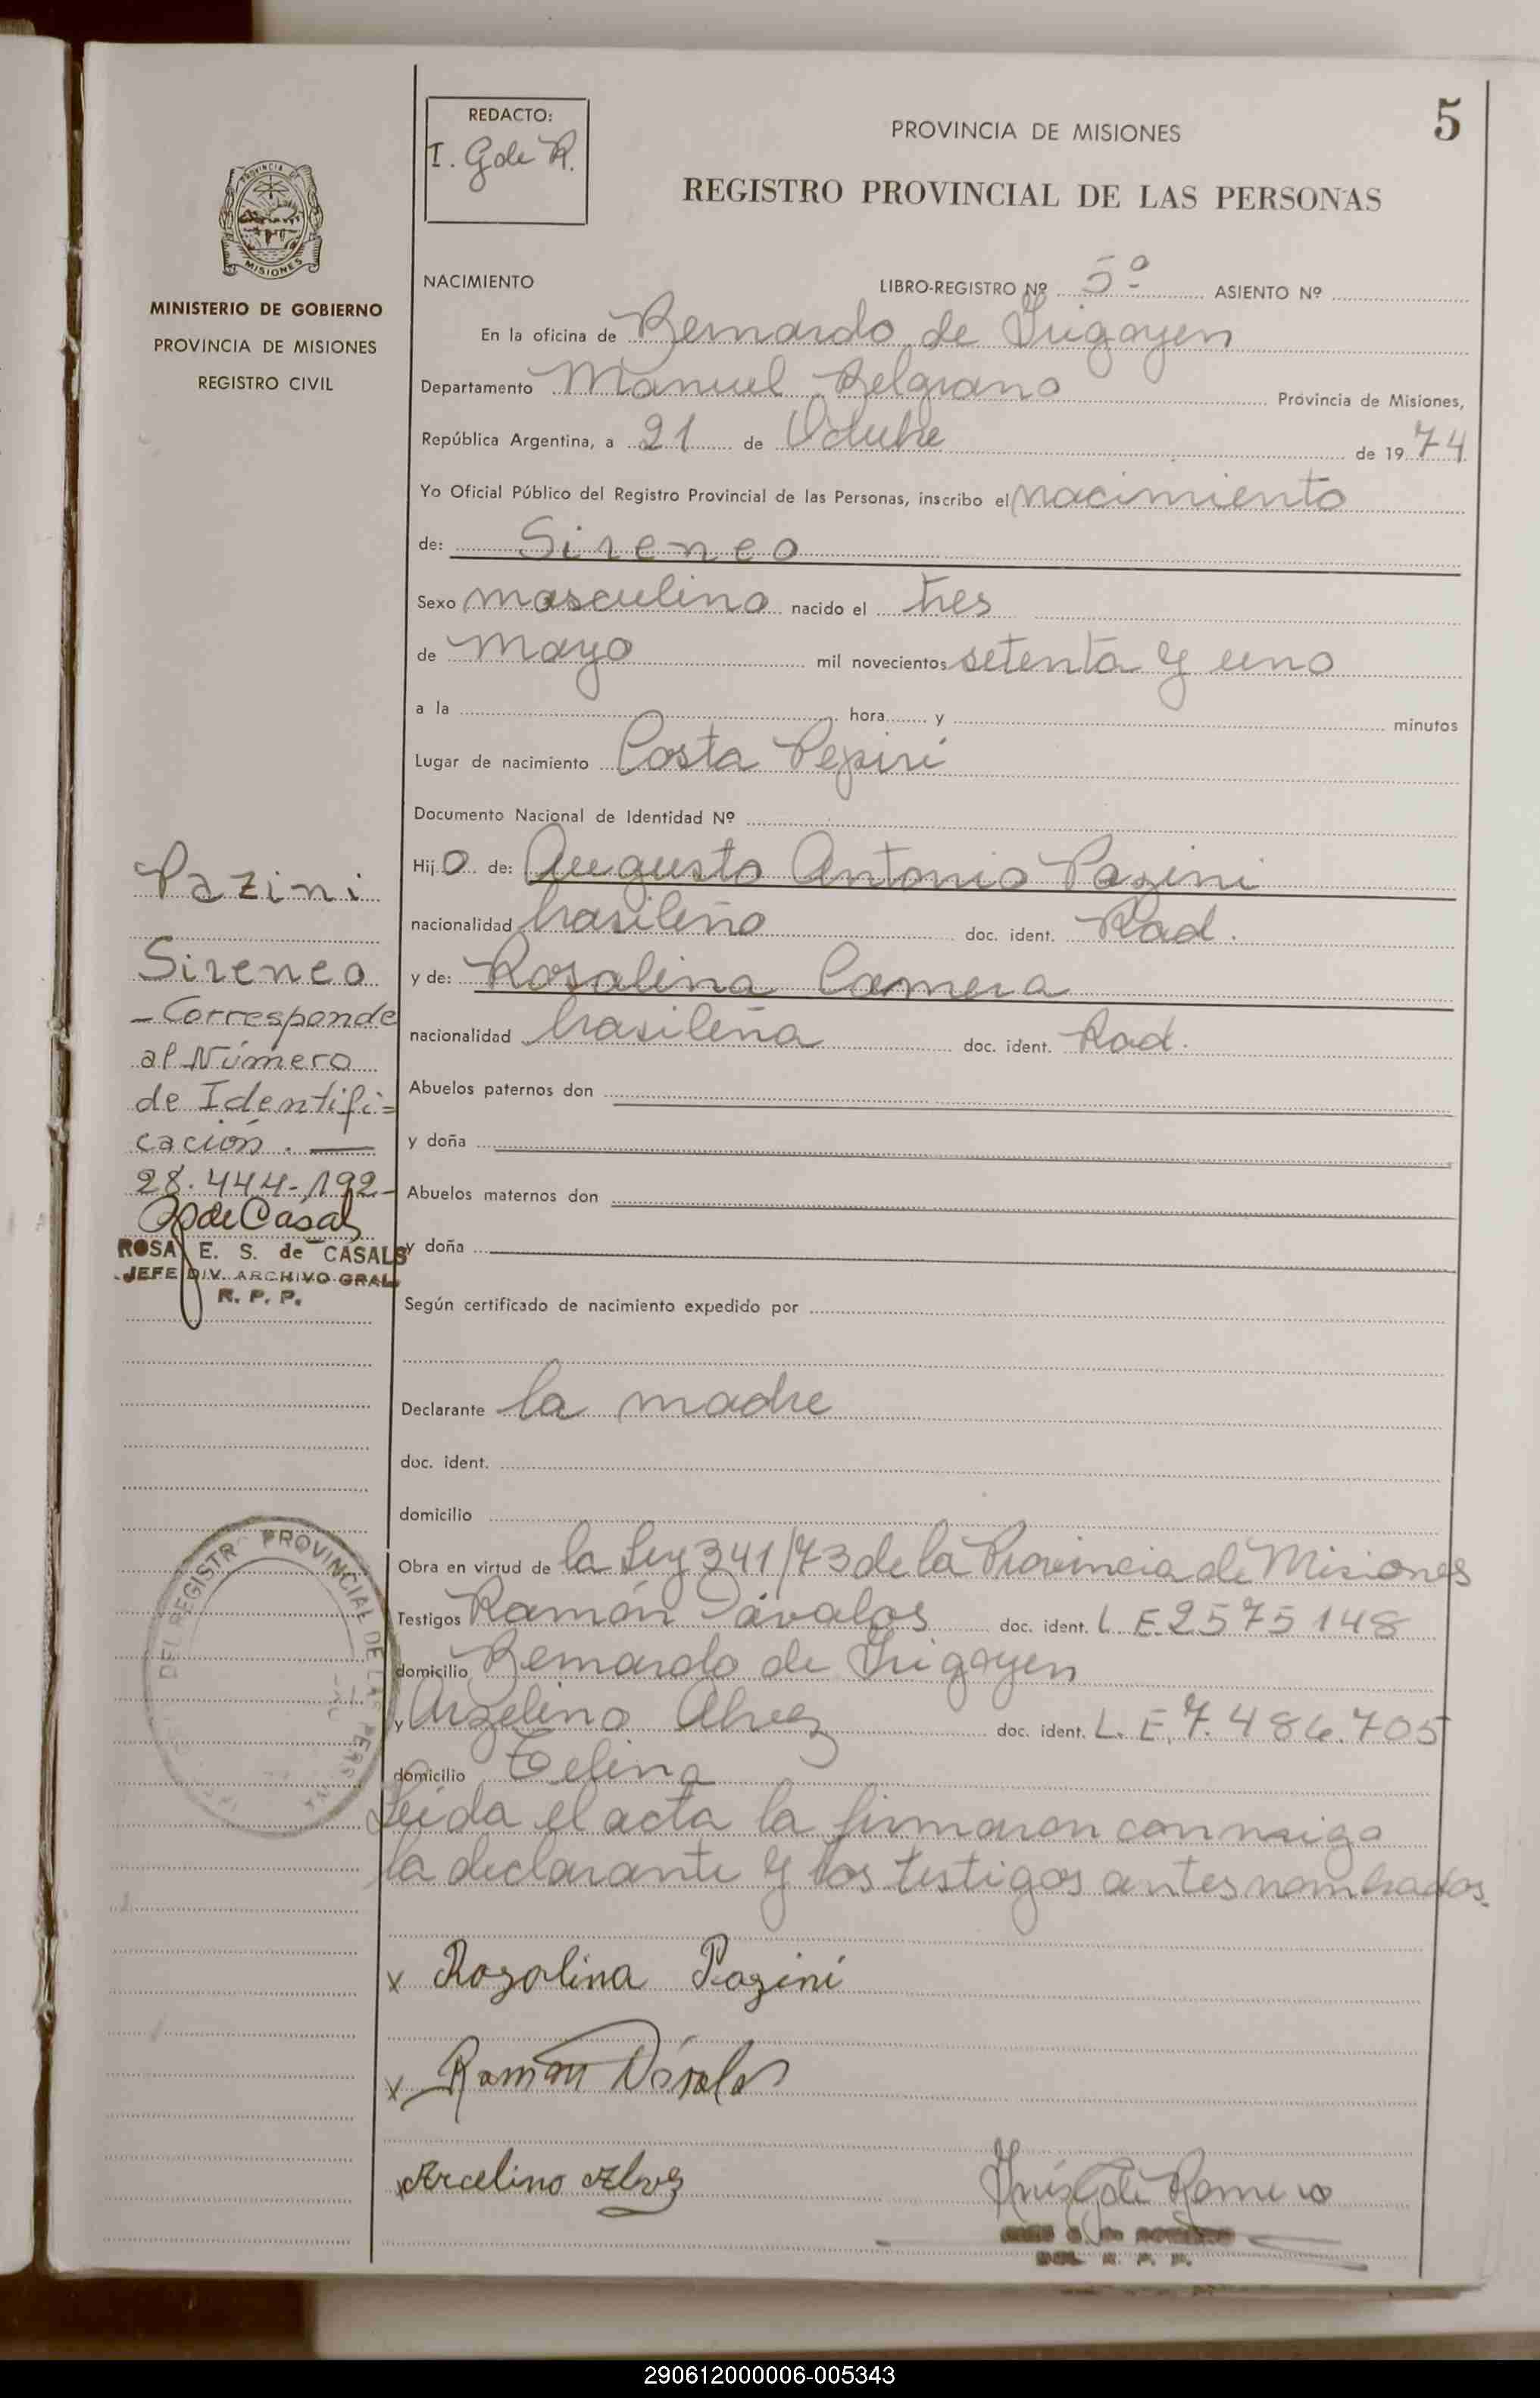 5
REDACTO:
I. G de R.
PROVINCIA DE MISIONES
REGISTRO PROVINCIAL DE LAS PERSONAS
PROVINCIA DE
MISIONES
MINISTERIO DE GOBIERNO
PROVINCIA DE MISIONES
REGISTRO CIVIL
NACIMIENTO LIBRO-REGISTRO Nº 5º ASIENTO Nº
En la oficina de Bernardo de Irigoyen
Departamento Manuel Belgrano Provincia de Misiones,
República Argentina, a 21 de Octubre de 1974
Yo Oficial Público del Registro Provincial de las Personas, inscribo el nacimiento
de: Sireneo
Sexo masculino nacido el tres
de mayo mil novecientos setenta y uno
a la hora y minutos
Lugar de nacimiento Costa Pepirí
Documento Nacional de Identidad Nº
Hijo de: Augusto Antonio Pazini
nacionalidad brasileño doc. ident. Rad.
y de: Rosalina Camera
nacionalidad brasileña doc. ident. Rad.
Abuelos paternos don
y doña
Abuelos maternos don
y doña
Según certificado de nacimiento expedido por
Declarante la madre
doc. ident.
domicilio
Obra en virtud de la Ley 341/73 de la Provincia de Misiones
Testigos Ramón Dávalos doc. ident. L.E 2575148
domicilio Bernardo de Irigoyen
y Arzelino Alvez doc. ident. L.E. 7.486.705
domicilio
Leída el acta la firmaron conmigo
la declarante y los testigos antes nombrados.
x Rozalina Pazini
x Ramón Dávalos
x Arcelino Alvez
Inés G de Romero
R. P. P.
Pazini
Sireneo
- Corresponde
al Número
de Identifi=
cación. —
28.444.192-
de Casals
ROSA E. S. de CASALS
JEFE DIV. ARCHIVO GRAL.
R. P. P.
DEL REGISTR PROVINCIAL DE LAS PERSONA
290612000006-005343